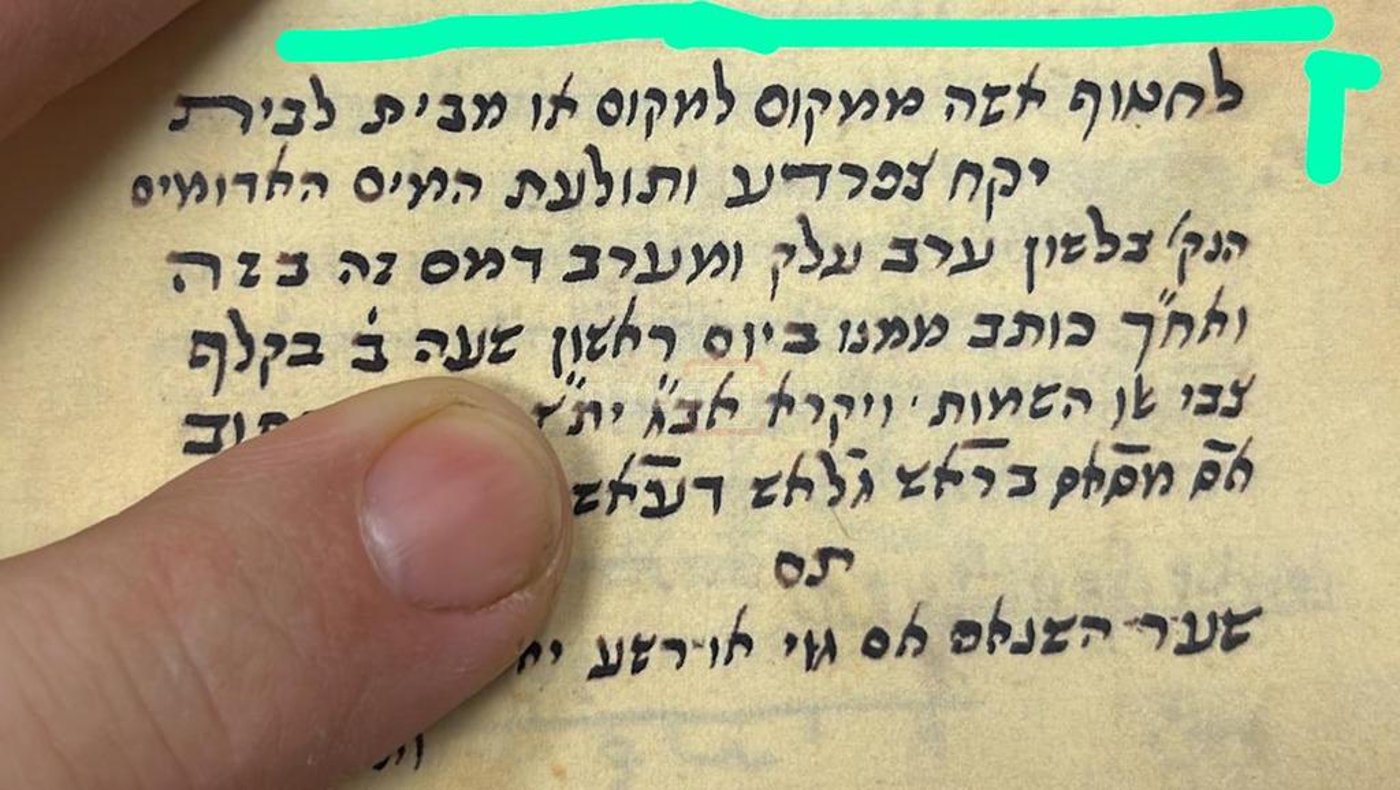 לחטוף אשה ממקום למקום או מבית לבית
יקח צפרדיע ותולעת המים האדומים
הנק' בלשון ערב עלק ומערב דמם זה בזה
ואח"ך כותב ממנו ביום ראשון שעה ב' בקלף
צבי אלו השמות ויקרא אב"ג ית"ץ
אם מסאם בראש גלאש דעבאש
תם
שער השנאה אם גוי או רשע